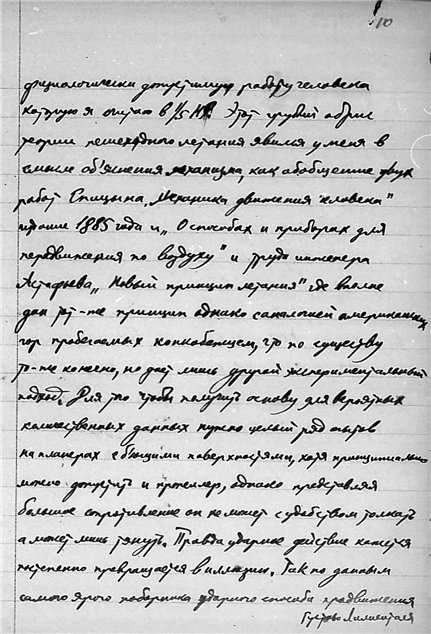 10
физиологически допустимую работу человека
которую я считаю в 1/5 HP. Этот грубый абрис
теории пешеходного летания явился у меня в
смысле об'яснения механизма, как обобщение двух
работ Спицына „Механика движения человека"
1885 года и „О способах и приборах для
передвижения по воздуху" и труда инженера
Астафьева „Новый принцип летания" где вполне
дан тот-же принцип однако с аналогией американских
гор пробегаемых конькобежцем, что по существу
то-же конечно, но дает лишь другой экспериментальный
подход. Для того чтобы получить основу для вероятных
количественных данных нужно целый ряд опытов
на планерах с бьющими поверхностями, хотя принципиально
можно допустить и пропеллер, однако представляя
большое сопротивление он не может с удобством толкать
а может лишь тянуть. Правда ударное действие кажется
постепенно превращается в иллюзии. Так по данным
самого ярого поборника ударного способа продвижения
Густава Лилиенталя